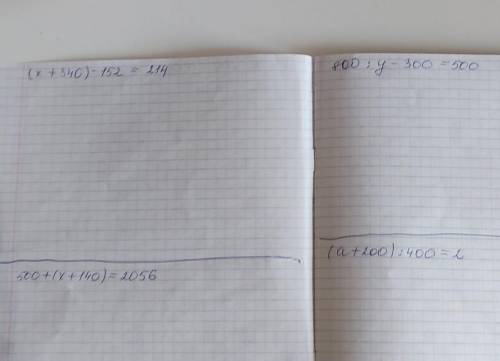 (x + 340) - 152 = 214
500 + (x + 140) = 2056
800 : y - 300 = 500
(a + 200) : 400 = 2